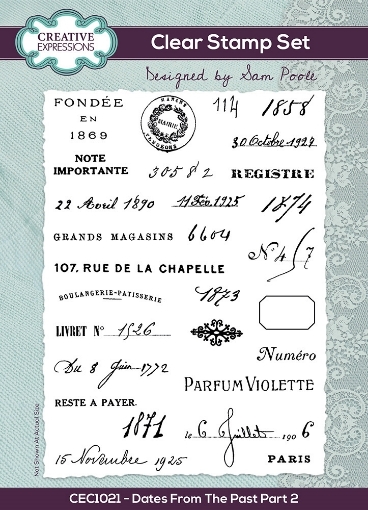 CREATIVE
EXPRESSIONS
Clear Stamp Set
Designed by Sam Poole
FONDÉE
EN
1869
MAIRIE
114
1858
30 Octobre 1927
NOTE
IMPORTANTE
30582
REGISTRE
22 Avril 1890
11 Fév. 1925
1874
GRANDS MAGASINS
6604
Nº 4/7
107, RUE DE LA CHAPELLE
BOULANGERIE-PATISSERIE
1873
LIVRET Nº 1526
Numéro
Du 8 Juin 1772
PARFUM VIOLETTE
RESTE A PAYER
1871
le 6 Juillet 1906
15 Novembre 1925
PARIS
Not Shown At Actual Size
CEC1021 - Dates From The Past Part 2